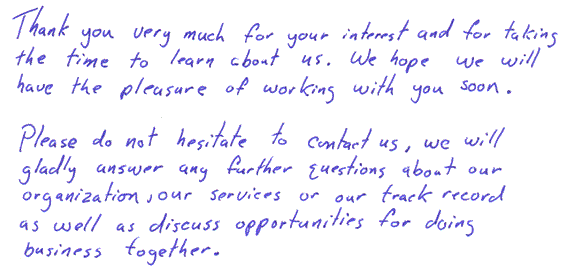 Thank you very much for your interest and for taking
the time to learn about us. We hope we will
have the pleasure of working with you soon.
Please do not hesitate to contact us, we will
gladly answer any further questions about our
organization, our services or our track record
as well as discuss opportunities for doing
business together.